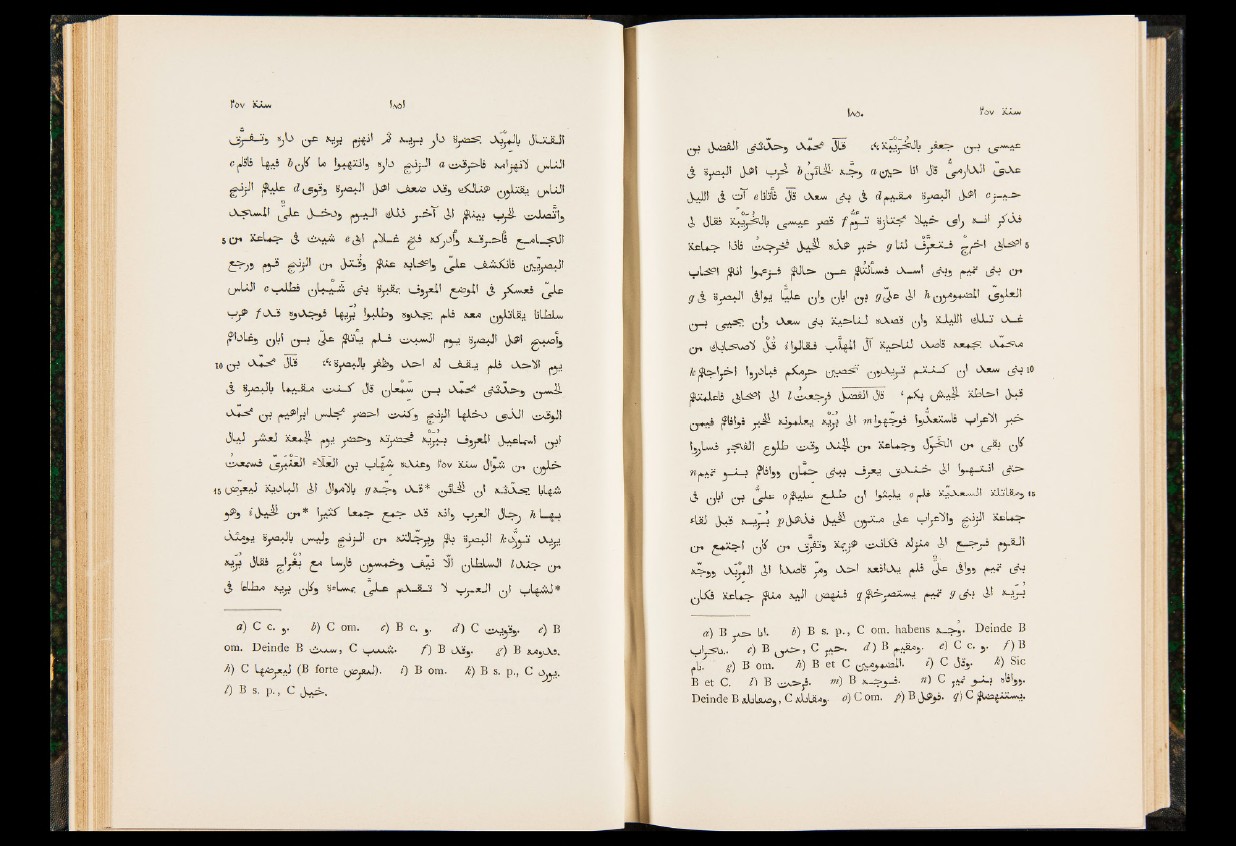 سنة ٢٥٧
١٨٥٠
عيسى بن جعفر بالخُرَيْبة ۞ قال محمّد وحدّثنى الفضل بن
عدىّ الدارمىّ قال انا حين a وجّه الخائن b لحرب اهل البصرة فى
حيّز c اهل البصرة مقيم d فى بنى سعد قال فأتانا e آتٍ فى الليل
فذكر انه رأى خيلا مجتازة تؤمّ f قصر عيسى بالخُرَيْبة فقال لى
5 اصحابى اخرج فتعرّف لنا g خبر هذه الخيل فخرجتُ فاذا جماعة
من بنى تميم وبنى اسد فسألتُهم عن حالهم فزعموا انهم اصحاب
العلوىّ المضمومون h الى علىّ g بن ابان وان عليّا يوافى البصرة فى g
غد تلك الليلة وان قصده لناحية بنى سعد وان يحيى بن
محمّد بجمعه قاصد لناحية آل المهلّب فقالوا i قُلْ لاصحابك من
10 بنى سعد ان كنتم تريدون تحصين حرمكم فبادروا اخراجهم k
قبل احاطة الجيش بكم، قال الفضل فرجعتُ l الى اصحابى فاعلمتهم
خبر الاعراب فاستعدّوا فوجّهوا m الى بُرَيْه يعلمونه الخبر فوافاهم فيمن
كان بقى من الخَوَل وجماعة من الجند وقت طلوع الفجر فساروا
حتى انتهوا الى خندق يعرف ببنى حِمّان ووافاهم بنو تميم n
15 ومقاتلة السعديّة فلم o يلبثوا ان طلع عليهم o علىّ بن ابان فى
جماعة الزنج والاعراب على متون الخيل فذهل p بُرَيه قبل لقاء
القوم فرجع الى منزله فكانت هزيمة وتفرّق من كان اجتمع من
بنى تميم ووافى علىّ فلم يدافعه احد ومرّ قاصدا الى المِرْبَد ووجّه
بُرَيه الى بنى g تميم يستصرخهم q فنهض اليه منهم جماعة فكان
a) B انا خبر. b) B s. p., C om. habens وجّه. Deinde B
c) B حبس, C خير. d) B ومقيم. e) C c. و. f) B
نام. g) B om. h) B et C المضمومين. i) C وقال. k) Sic
B et C. l) B فرحت. m) B فوجه. n) C ووافاه بنو نمير.
Deinde B, C ومقاتله. o) C om. p) B فوهل. q) C يستنهضهم.
سنة ٢٥٧
١٨٥١
القتال بالمِرْبَد بحضرة دار بريه ثم انهزم بريه عن داره وتفرّق
الناس لانهزامه فاحرقت a الزنج داره وانتهبوا ما كان b فيها فاقام c
الناس يقتتلون هنالك وقد ضعف اهل البصرة وقوى d عليهم الزنج
واتّصلت الحرب بينهم الى آخر ذلك اليوم ودخل علىّ المسجد
5 الجامع فأحرقه وأدركه فتح غلام ابى e شيث فى جماعة من
البصريّين فانكشف علىّ واصحابه عنهم وقُتل من الزنج قوم ورجع
علىّ فعسكر فى الموضع المعروف بمقبرة بنى شَيْبان فطلب e الناس
سلطانا يقاتلون معه فلم يجدوه وطلبوا بُرَيْها فوجدوه قد f هرب
وأصبح اهل البصرة يوم السبت فلم يأتهم علىّ بن ابان وغاداهم
يوم الاحد فلم يقف له احد وظفر بالبصرة ۞ قال محمّد بن 10
الحسن وحدّثنى محمّد بن سِمْعان قال كنت مقيما بالبصرة فى
الوقت الذى دخلها الزنج وكنت احضر مجلس ابراهيم بن محمّد
ابن اسماعيل المعروف بـبُرَيْه فحضرته وحضر يوم الجمعة لعشر ليال
خلون من شوال سنة ٢٥٧ وعنده شهاب بن العلاء العَنْبَرىّ فسمعتُ
15 شهابا يحدّثه ان الخائن *قد وجّه g بالاموال الى البادية ليعرض
بها h رجال العرب وانه قد جمع جمعا كثيرا *من الخيل i وهو
يريد تورّد k البصرة بهم وبرجّالته من الزنج وليس بالبصرة يومئذ
من جند l السلطان الّا نيّف وخمسون فارسا مع بُغْراج فقال بُرَيه
*لشهاب ان العرب لا تقدم علىّ بمساءة وكان بريه مطاعا فى
a) C c. و. b) C om. c) B c. و. d) C وقويت. e) B
om. Deinde B, C. f) B وقد. g) B.
h) C ليعرضها (B forte لتعرض). i) B om. k) B s. p., C يورد.
l) B s. p., C خيل.